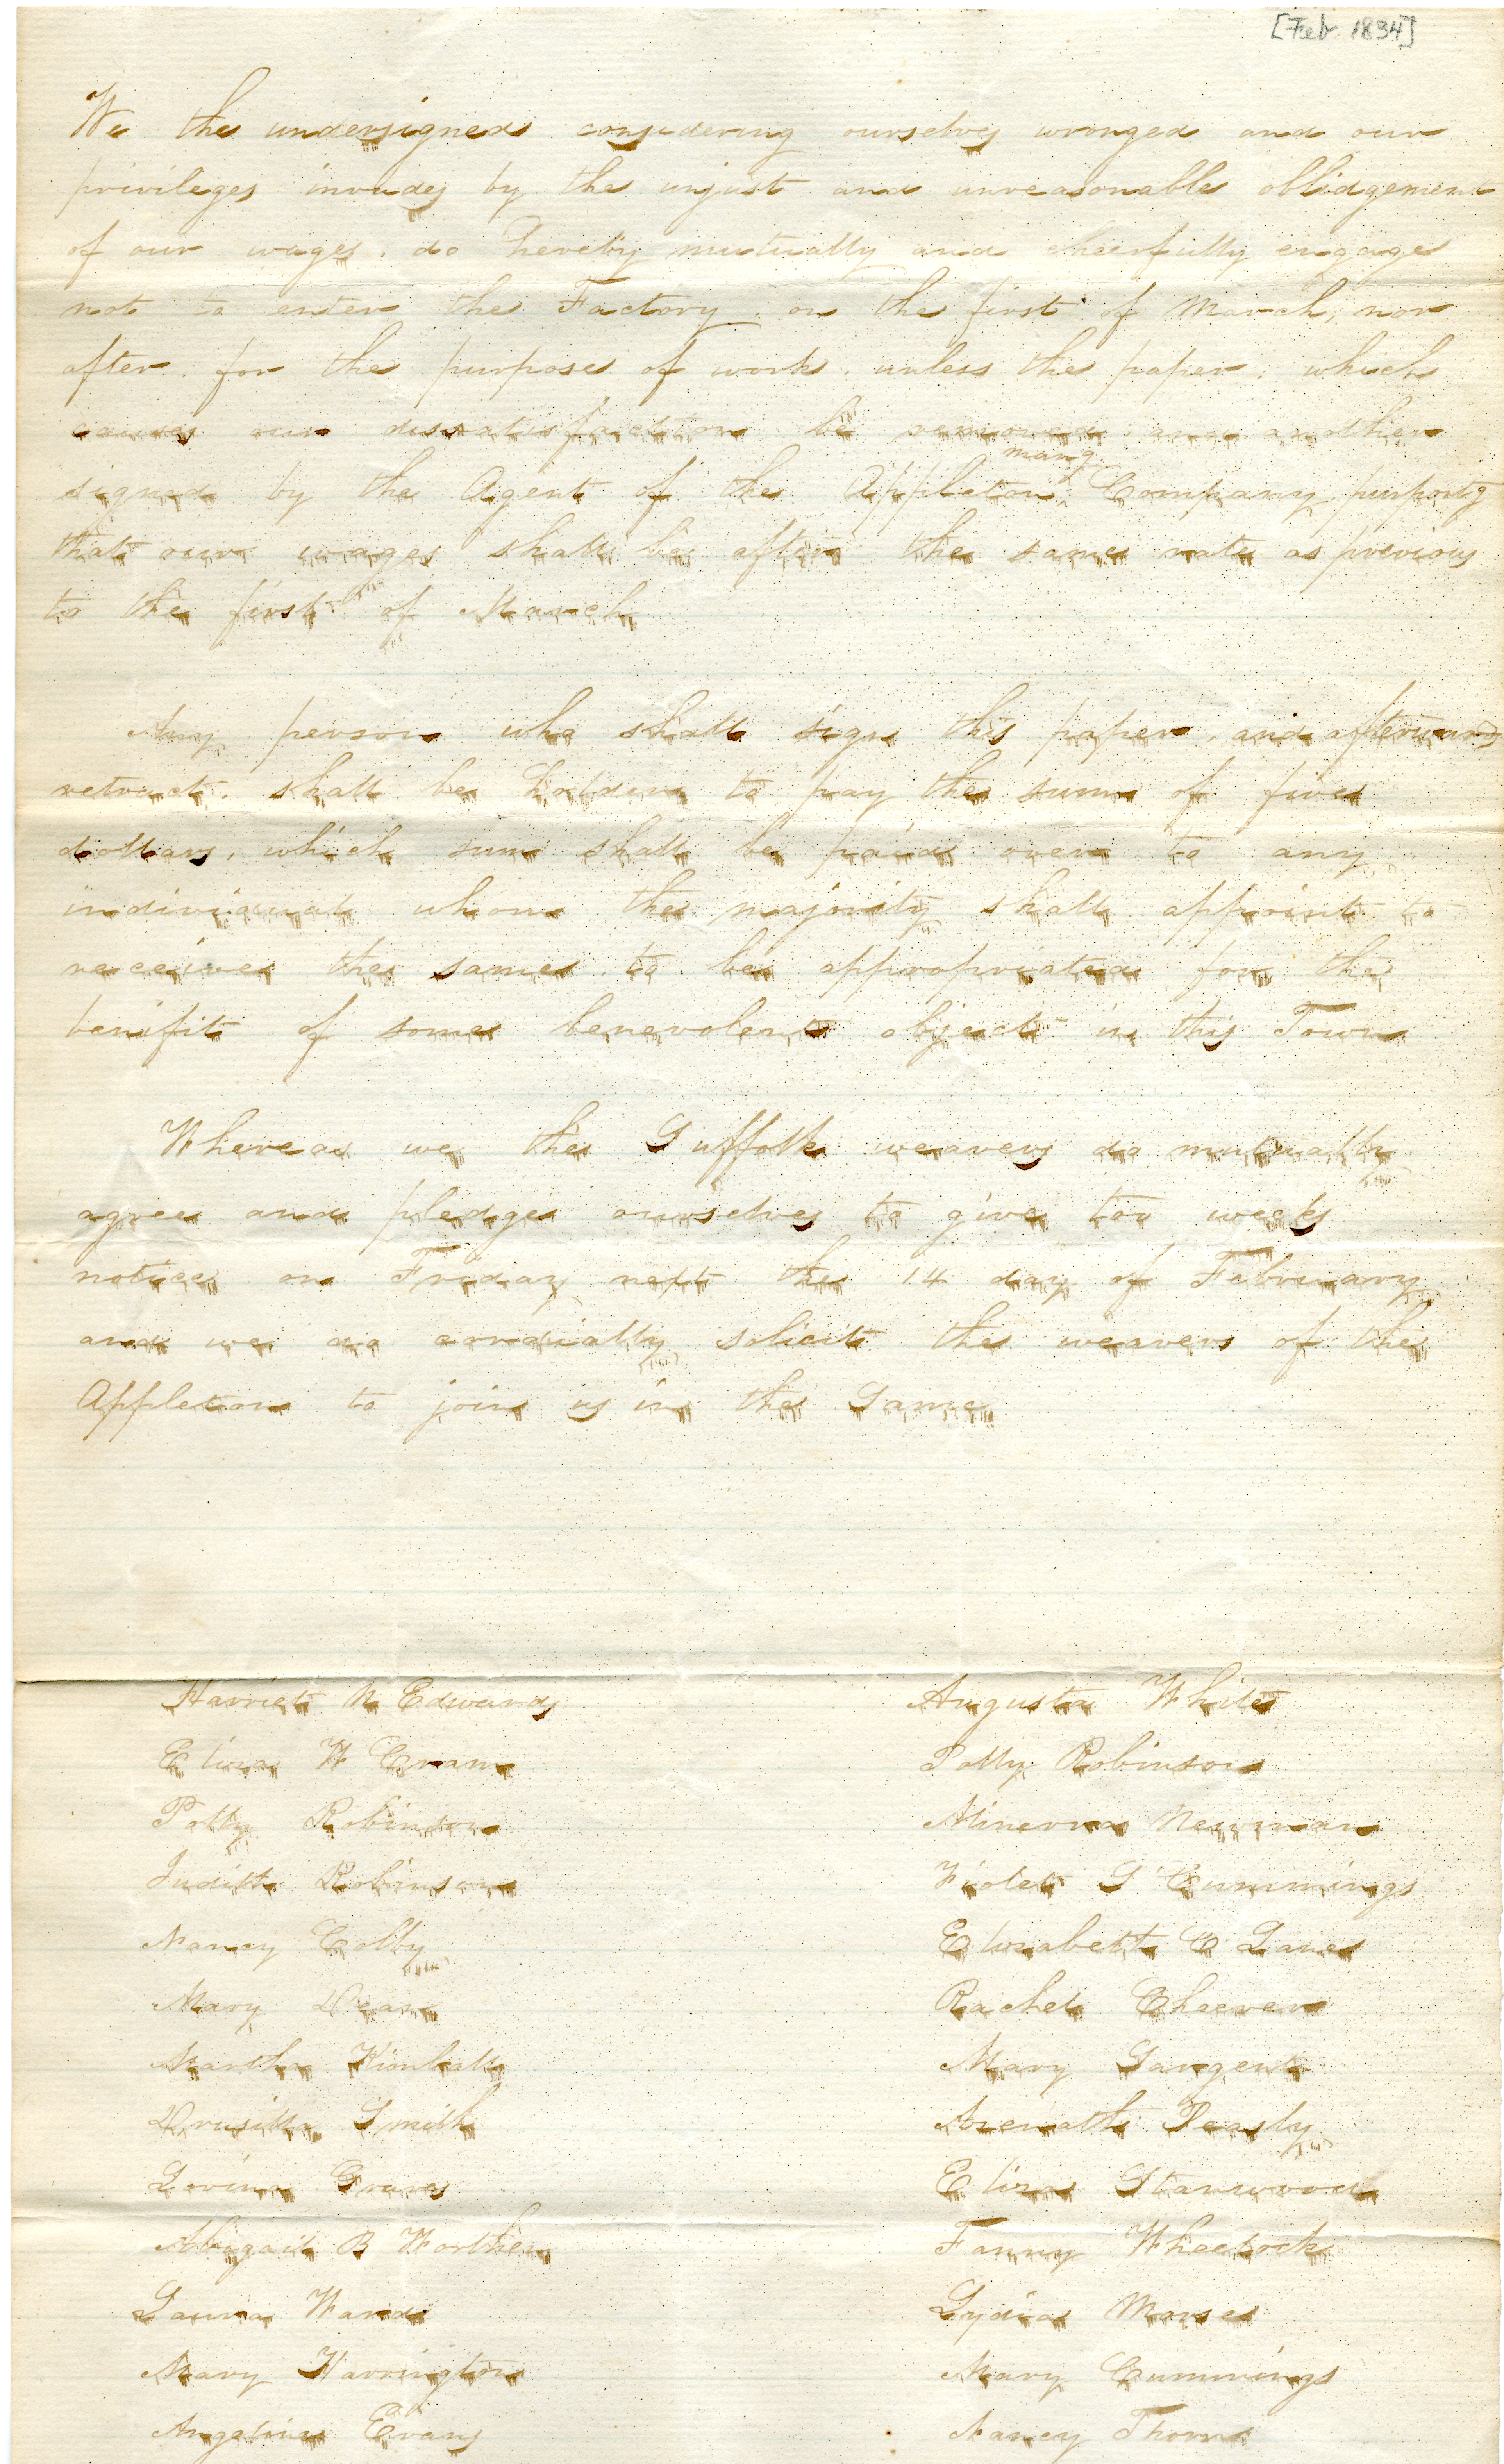 [Feb 1834]
We the undersigned considering ourselves wronged and our
privileges invades by the unjust and unreasonable oblidgement
of our wages, do hereby mutually and cheerfully engage
not to enter the Factory on the first of March, nor
after for the purpose of work, unless the paper, which
causes our dissatisfaction be removed and another
signed by the Agent of the Appleton mang Company purportg
that our wages shall be after the same rate as previous
to the first of March
Any person who shall sign this paper, and afterward
retract, shall be holden to pay the sum of five
dollars, which sum shall be paid over to any
individual whom the majority shall appoint to
receive the same to be appropriated for the
benifit of some benevolent object in this Town
Whereas we the Suffolk weavers do mutually
agree and pledge ourselves to give tou weeks
notice on Friday next the 14 day of February
and we do cordially solicit the weavers of the
Appleton to join us in the Same
Harriet N Edwards
Eliza W Cram
Polly Robinson
Judith Robinson
Nancy Colby
Mary Dean
Martha Kimball
Drusilla Smith
Lovina Graves
Abigail B Worthen
Laura Ward
Mary Harrington
Angeline Evans
Augusta White
Polly Robinson
Minerva Newman
Violet S Cummings
Elizabeth C Lane
Rachel Cheever
Mary Sargent
Azenath Peasly
Eliza Stanwood
Fanny Wheelock
Lydia Morse
Mary Cummings
Nancy Thorn